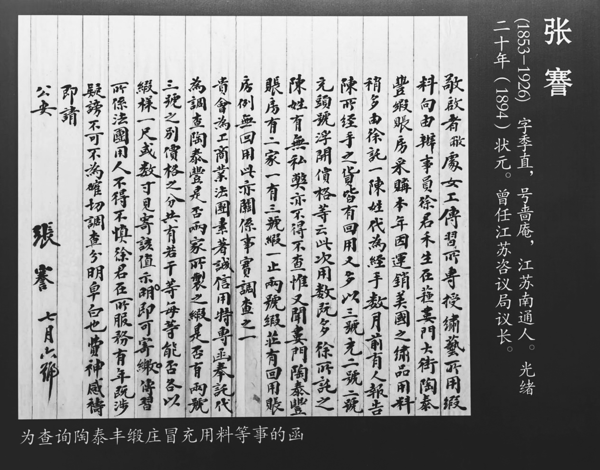 张謇
(1853—1926) 字季直，号啬庵，江苏南通人。光绪
二十年（1894）状元。曾任江苏咨议局议长。
敬啟者敝處女工傳習所專授繡藝所用緞
料向由辦事員徐君禾生在婁門大街陶泰
豐緞賬房采購本年因運銷美國之繡品用料
稍多由徐託一陳姓代為經手數月前有人報告
陳所經手之貨皆有回用又多以三號充一號二號
充頭號浮開價格等云此次用數既多徐所託之
陳姓有無私弊亦不得不查惟又聞婁門陶泰豐
賬房有二家一有三號緞一止兩號緞莊有回用賬
房例無回用此亦關係事實調查之一
貴會為工商業法團素著誠信用特專函奉託代
為調查陶泰豐是否兩家所製之緞是否有兩號
三號之別價格之分共有若干等每等能否各以
緞樣一尺或數寸見寄該值示明即可寄繳傳習
所係法團用人不得不慎徐君在所服務有年既涉
疑謗不可不為確切調查分明皁白也費神感禱
即請
公安
張謇 七月六號
为查询陶泰丰缎庄冒充用料等事的函